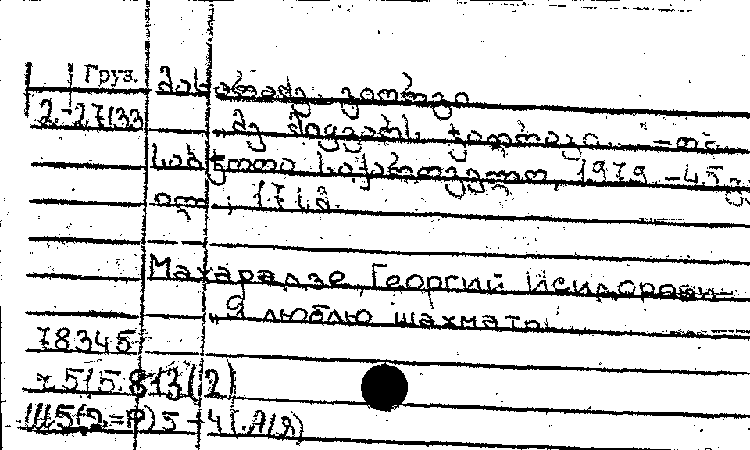 Груз. მახარაძე გიორგი
2-27133 „მე მიყვარს ჭადრაკი. – თბ.
საბჭოთა საქართველო, 1979 – 45 გვ.
ილ.; 17 სმ.
Махарадзе Георгий Исидорови-
„Я люблю шахматы
78345
7А5.813(2)